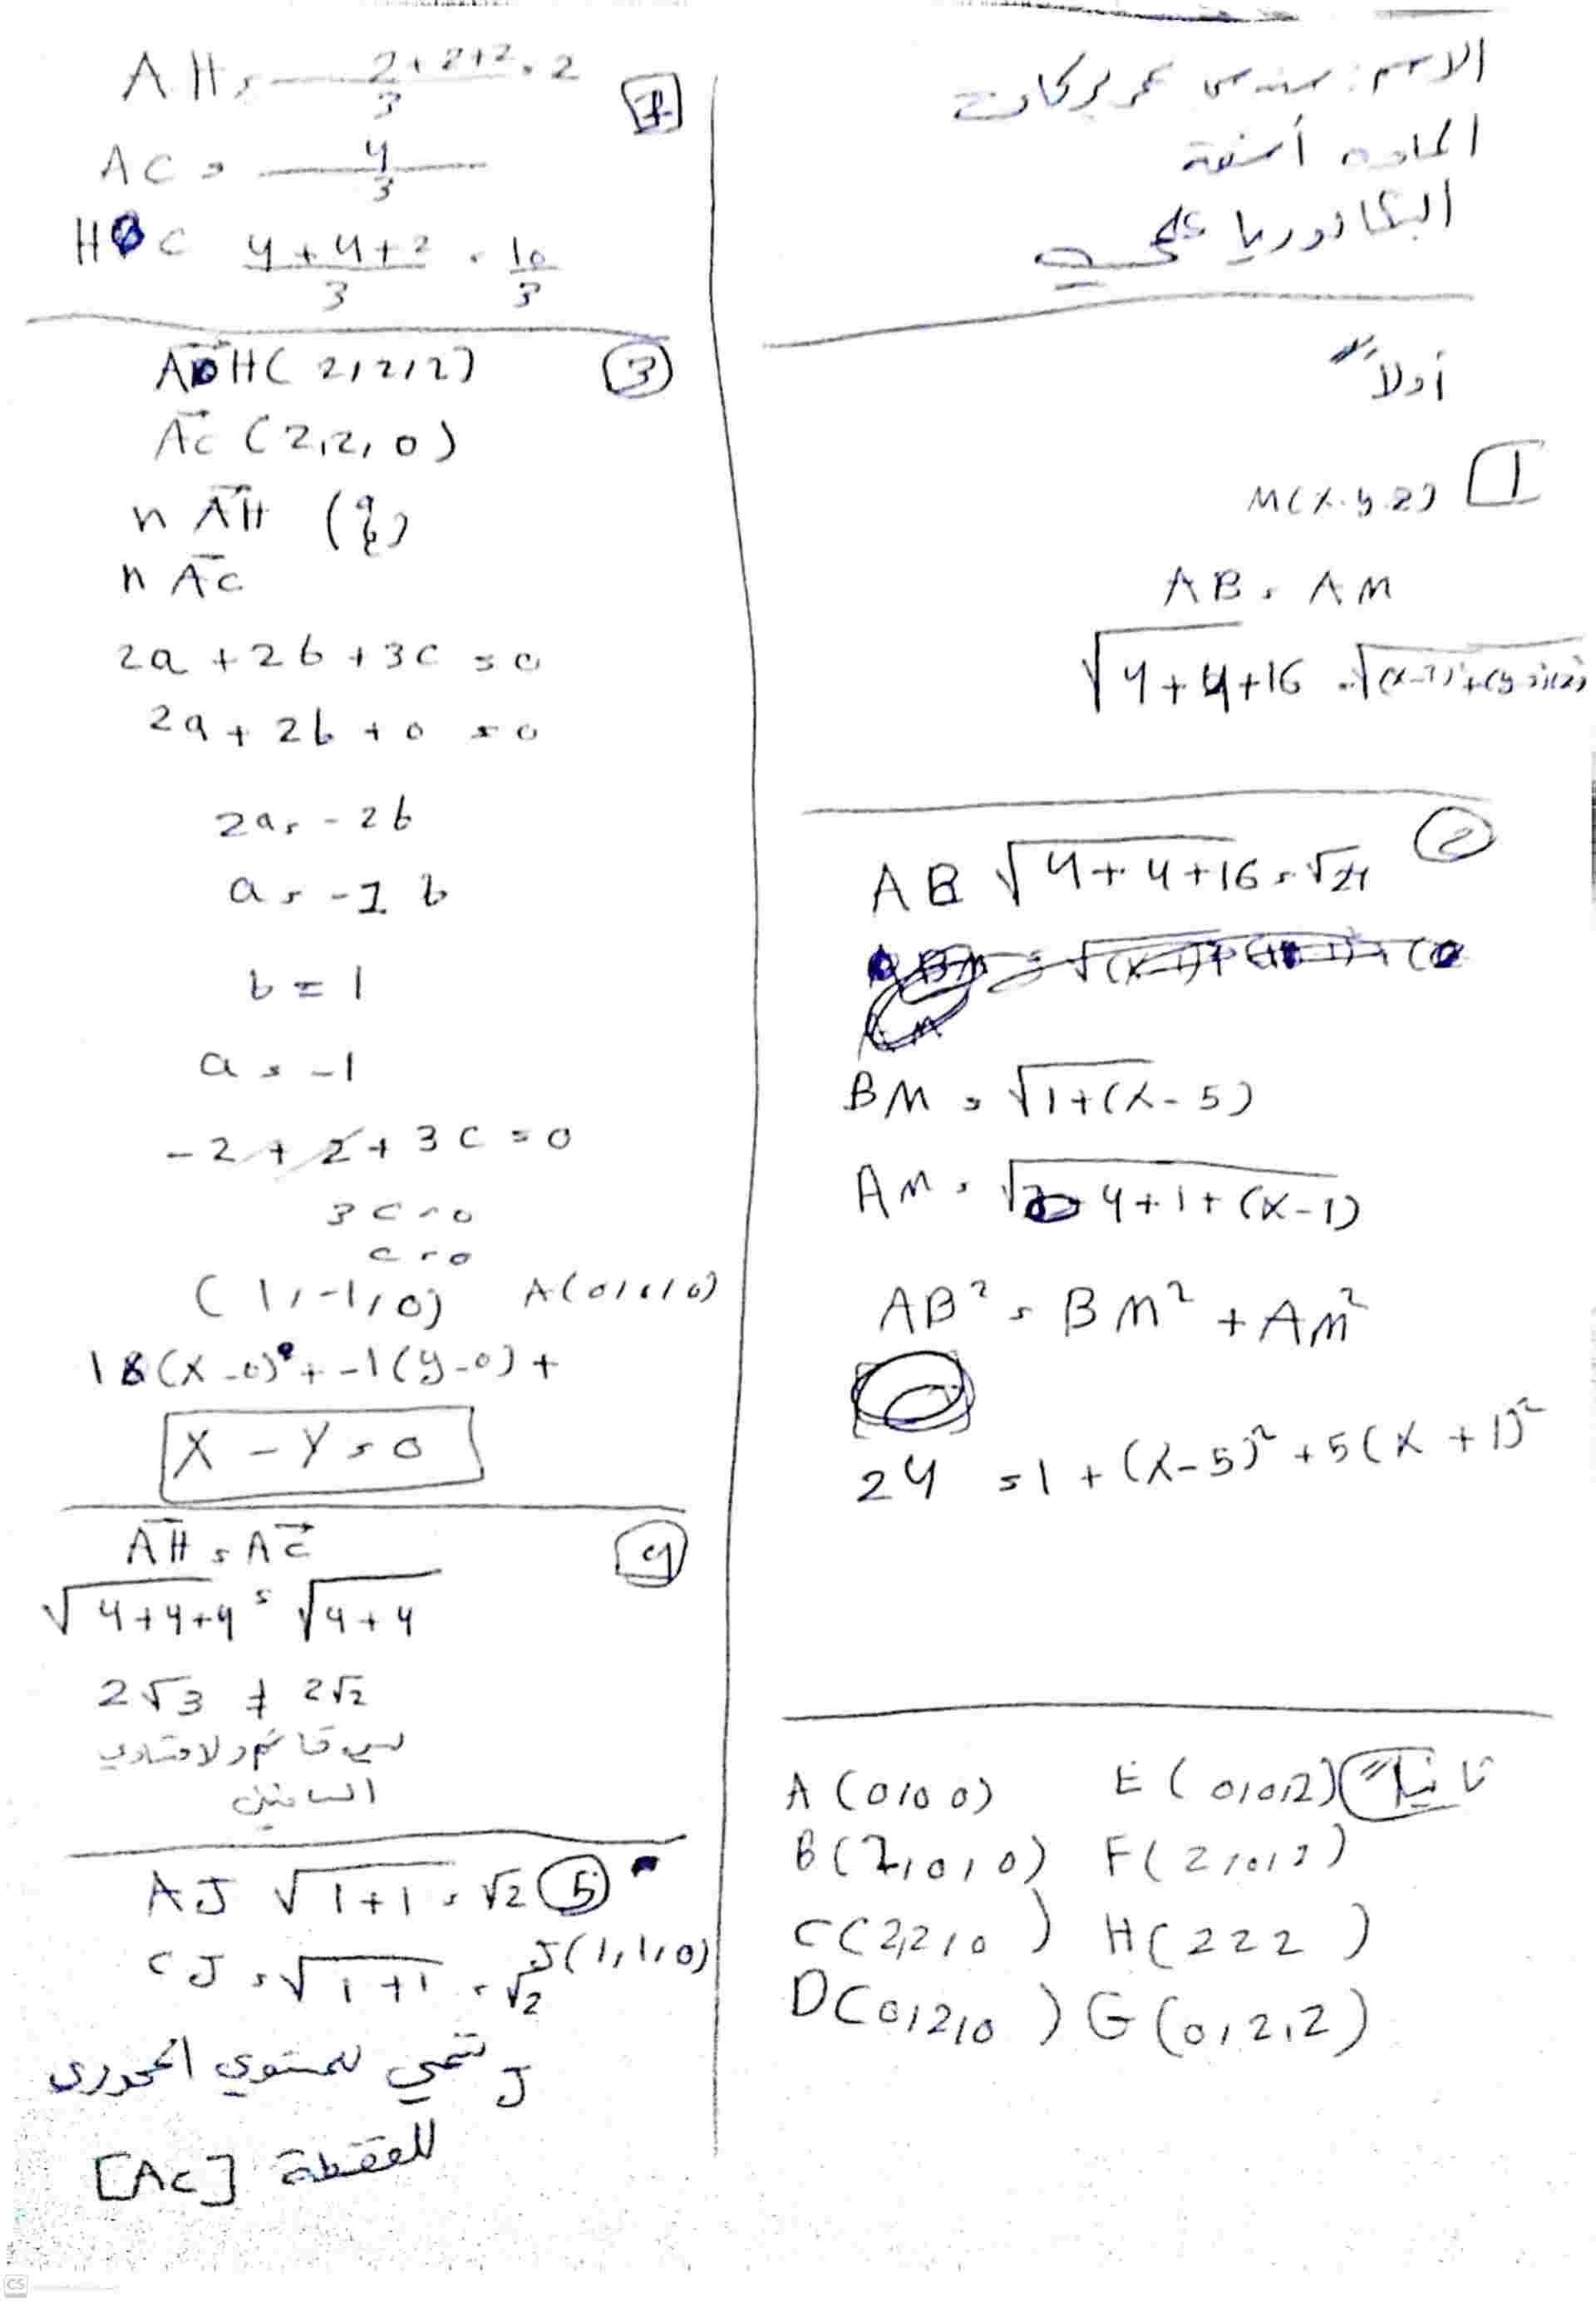 الاسم: سندس عمر بركات
الماده أشعة
البكالوريا علمي
أولاً
1
M(x.y.z)
AB = AM
√4+4+16 = √(x-2)²+(y
2
AB √4+4+16 = √24
BM = √1+(x-5)
AM = √4+1+(x-1)
AB² = BM² + AM²
24 = 1 + (x-5)² + 5(x+1)²
ثانياً
A (0,0 0) E (0,0,2)
B (2,0,0) F (2,0,2)
C (2,2,0) H (2 2 2)
D (0,2,0) G (0,2,2)
AH = 2+2+2/3 = 2
AC = 4/3
H C 4+4+2/3 = 10/3
3
AH (2,2,2)
AC (2,2,0)
n AH
n AC
2a + 2b + 3c = 0
2a + 2b + 0 = 0
2a = -2b
a = -1 b
b = 1
a = -1
-2 + 2 + 3c = 0
3c = 0
c = 0
(1,-1,0) A(0,0,0)
1(x-0) + -1(y-0) +
X - Y = 0
4
AH = AC
√4+4+4 = √4+4
2√3 ≠ 2√2
ليس قائم ولا متساوي
الساقين
5
AJ √1+1 = √2
J(1,1,0)
CJ = √1+1 = √2
J تنتمي للمستوي المحوري
للقطعة [AC]